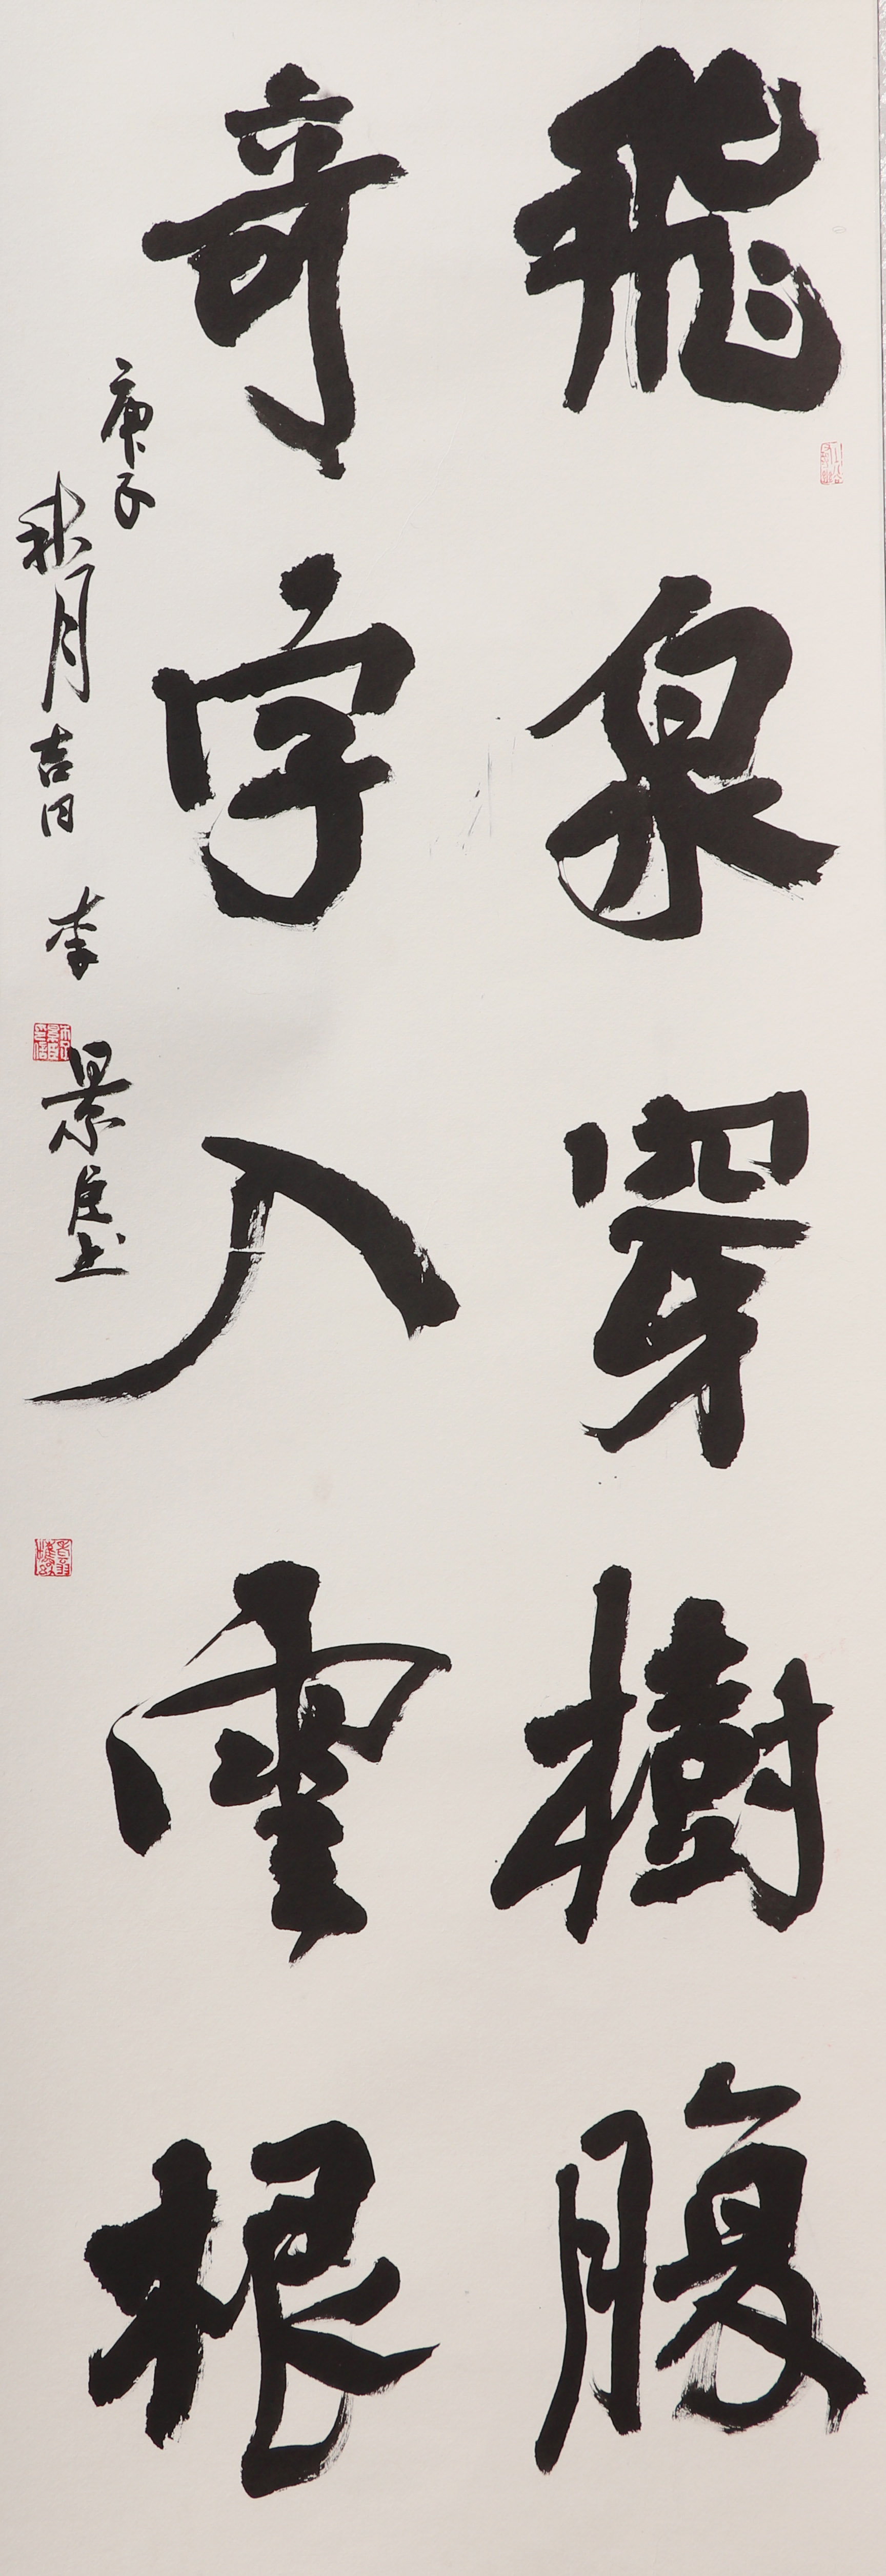 飛泉穿樹腹
奇字入雲根
庚子
秋月吉日 李景臣上